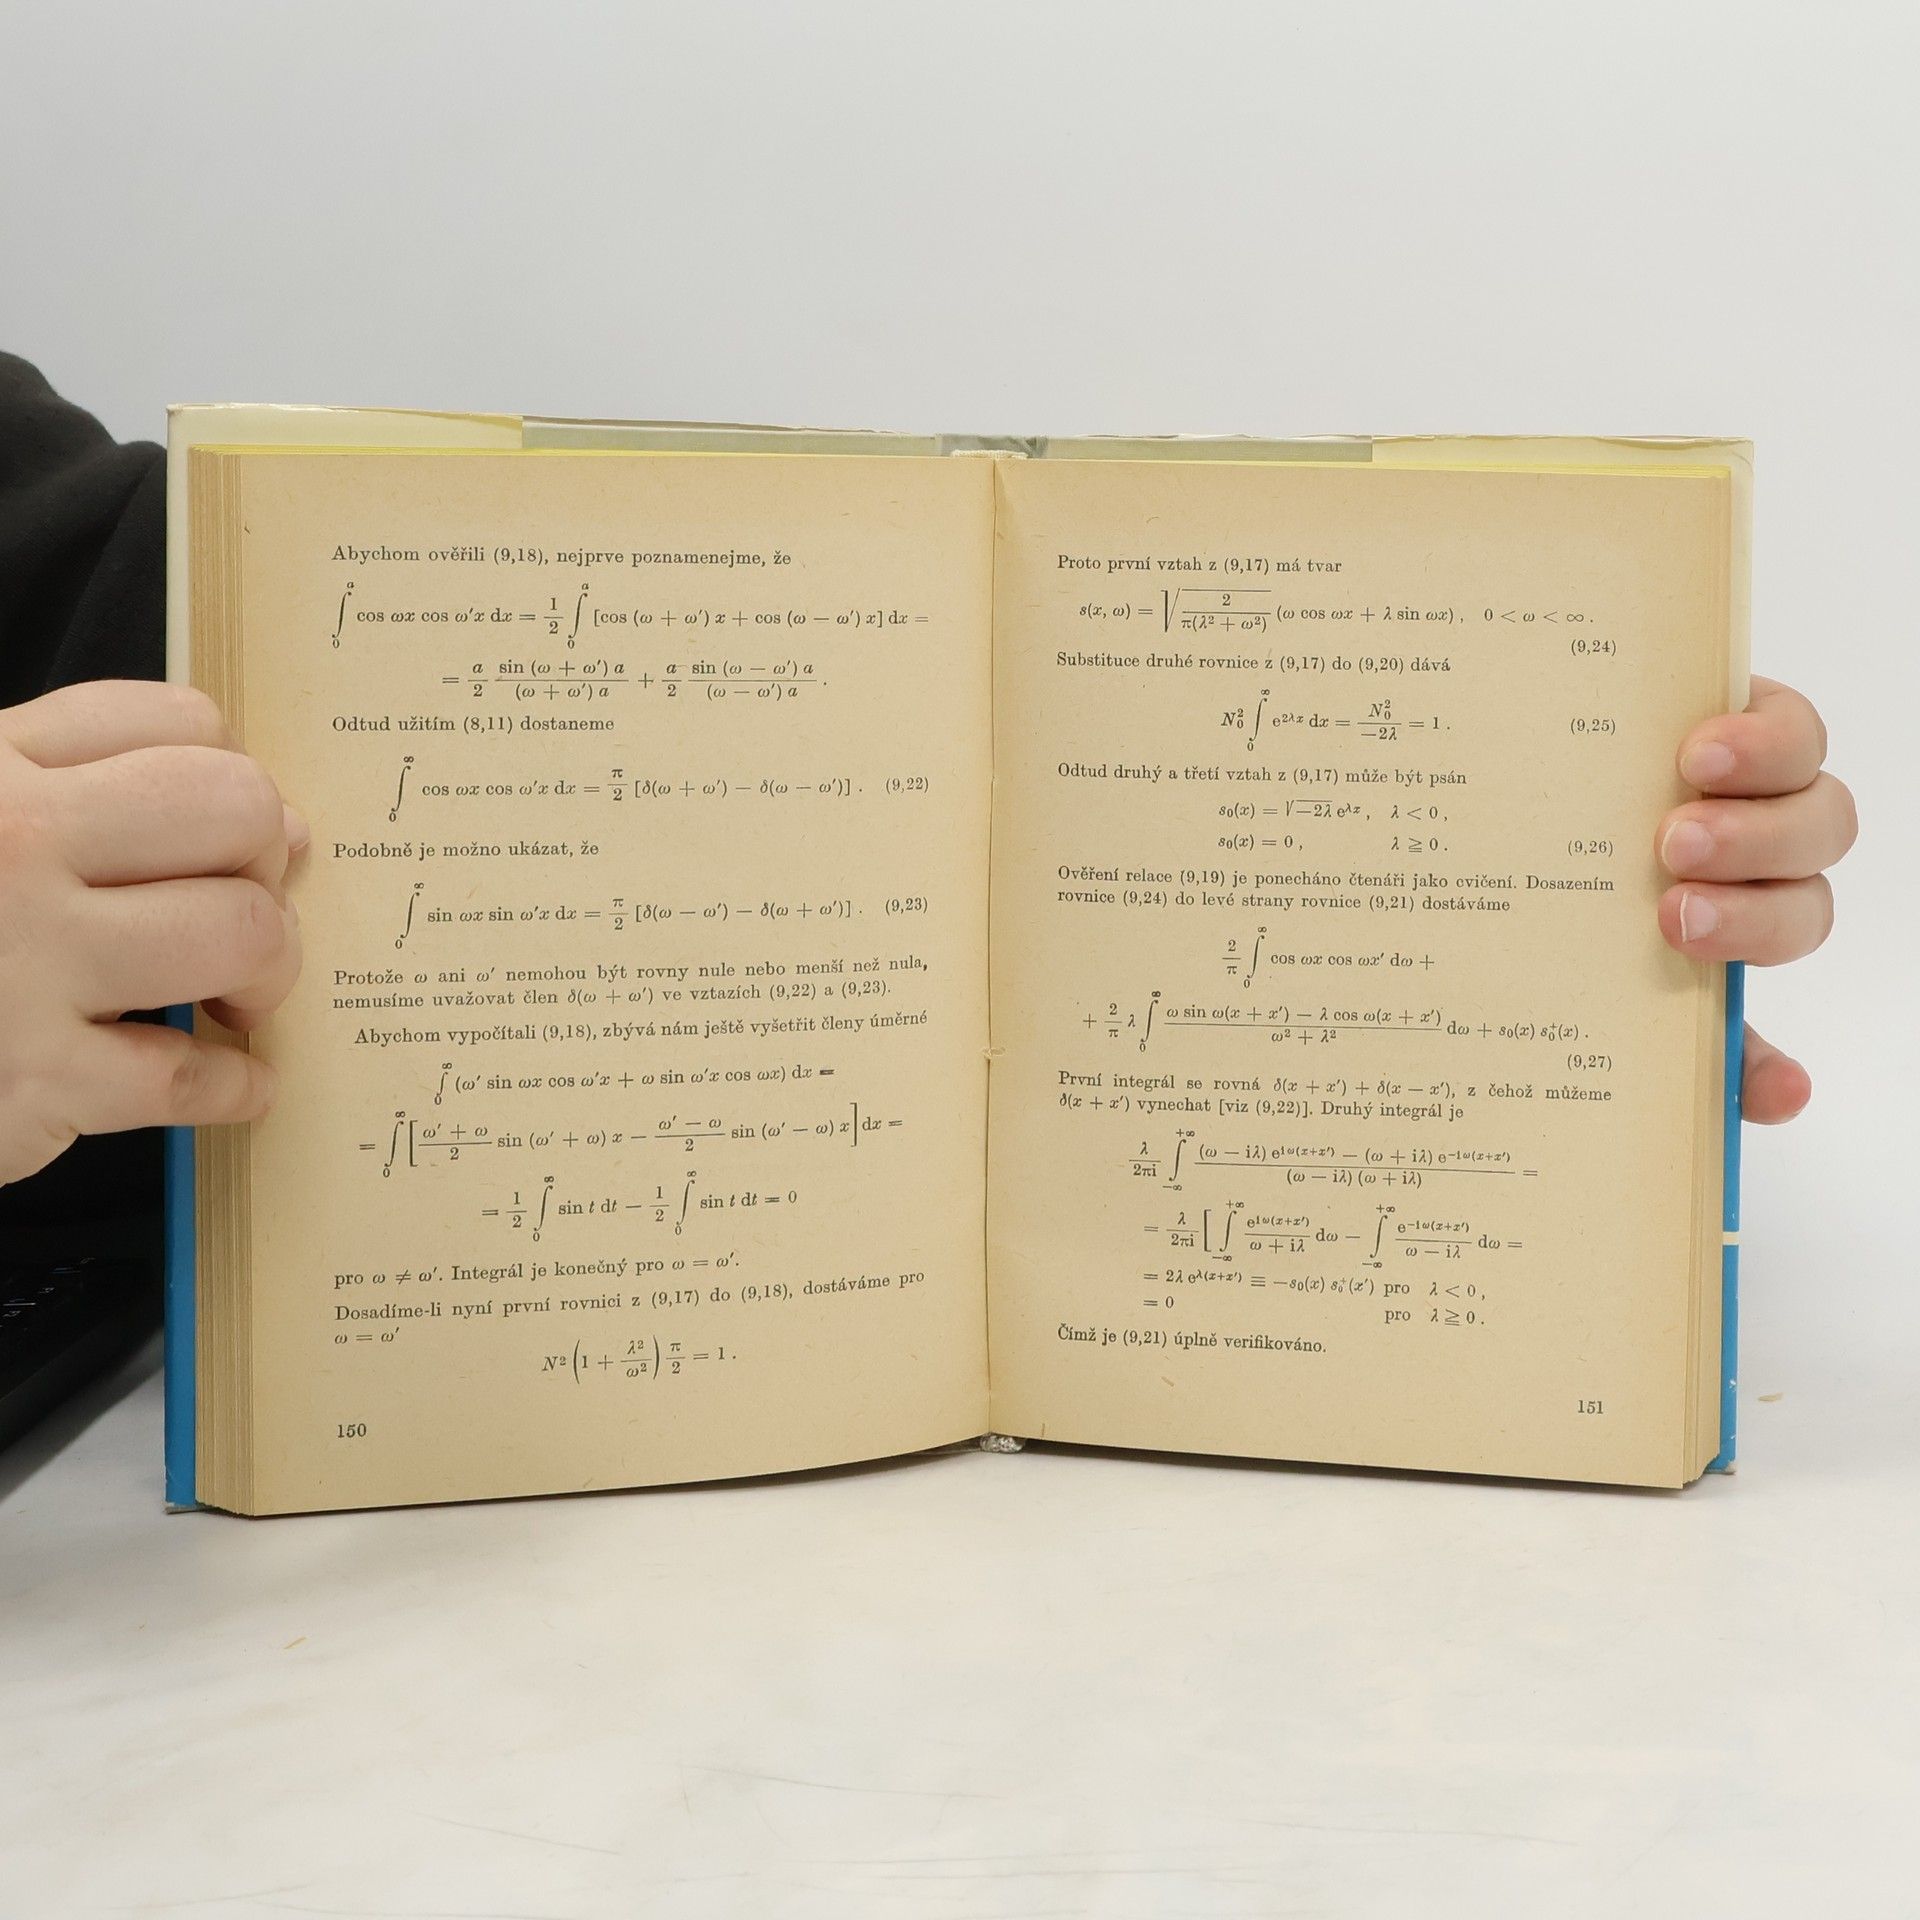 Abychom ověřili (9,18), nejprve poznamenejme, že
∫₀ᵃ cos ωx cos ω′x dx = 1/2 ∫₀ᵃ [cos (ω + ω′) x + cos (ω − ω′) x] dx =
= a/2 sin (ω + ω′) a / (ω + ω′) a + a/2 sin (ω − ω′) a / (ω − ω′) a .
Odtud užitím (8,11) dostaneme
∫₀^∞ cos ωx cos ω′x dx = π/2 [δ(ω + ω′) − δ(ω − ω′)] . (9,22)
Podobně je možno ukázat, že
∫₀^∞ sin ωx sin ω′x dx = π/2 [δ(ω − ω′) − δ(ω + ω′)] . (9,23)
Protože ω ani ω′ nemohou být rovny nule nebo menší než nula,
nemusíme uvažovat člen δ(ω + ω′) ve vztazích (9,22) a (9,23).
Abychom vypočítali (9,18), zbývá nám ještě vyšetřit členy úměrné
∫₀^∞ (ω′ sin ωx cos ω′x + ω sin ω′x cos ωx) dx =
= ∫₀^∞ [(ω′ + ω)/2 sin (ω′ + ω) x − (ω′ − ω)/2 sin (ω′ − ω) x] dx =
= 1/2 ∫₀^∞ sin t dt − 1/2 ∫₀^∞ sin t dt = 0
pro ω ≠ ω′. Integrál je konečný pro ω = ω′.
Dosadíme-li nyní první rovnici z (9,17) do (9,18), dostáváme pro
ω = ω′
N² (1 + λ²/ω²) π/2 = 1 .
150
Proto první vztah z (9,17) má tvar
s(x, ω) = √(2/(π(λ² + ω²))) (ω cos ωx + λ sin ωx) , 0 < ω < ∞ .
(9,24)
Substituce druhé rovnice z (9,17) do (9,20) dává
N₀² ∫₀^∞ e^{2λx} dx = N₀²/(−2λ) = 1 . (9,25)
Odtud druhý a třetí vztah z (9,17) může být psán
s₀(x) = √(−2λ) e^{λx} , λ < 0 ,
s₀(x) = 0 , λ ≧ 0 . (9,26)
Ověření relace (9,19) je ponecháno čtenáři jako cvičení. Dosazením
rovnice (9,24) do levé strany rovnice (9,21) dostáváme
2/π ∫₀^∞ cos ωx cos ωx′ dω +
+ 2/π λ ∫₀^∞ (ω sin ω(x + x′) − λ cos ω(x + x′))/(ω² + λ²) dω + s₀(x) s₀⁺(x) .
(9,27)
První integrál se rovná δ(x + x′) + δ(x − x′), z čehož můžeme
δ(x + x′) vynechat [viz (9,22)]. Druhý integrál je
λ/2πi ∫_{−∞}^{+∞} ((ω − iλ) e^{iω(x+x′)} − (ω + iλ) e^{−iω(x+x′)})/((ω − iλ) (ω + iλ)) =
= λ/2πi [ ∫_{−∞}^{+∞} e^{iω(x+x′)}/(ω + iλ) dω − ∫_{−∞}^{+∞} e^{−iω(x+x′)}/(ω − iλ) dω =
= 2λ e^{λ(x+x′)} ≡ −s₀(x) s₀⁺(x′) pro λ < 0 ,
= 0 pro λ ≧ 0 .
Čímž je (9,21) úplně verifikováno.
151